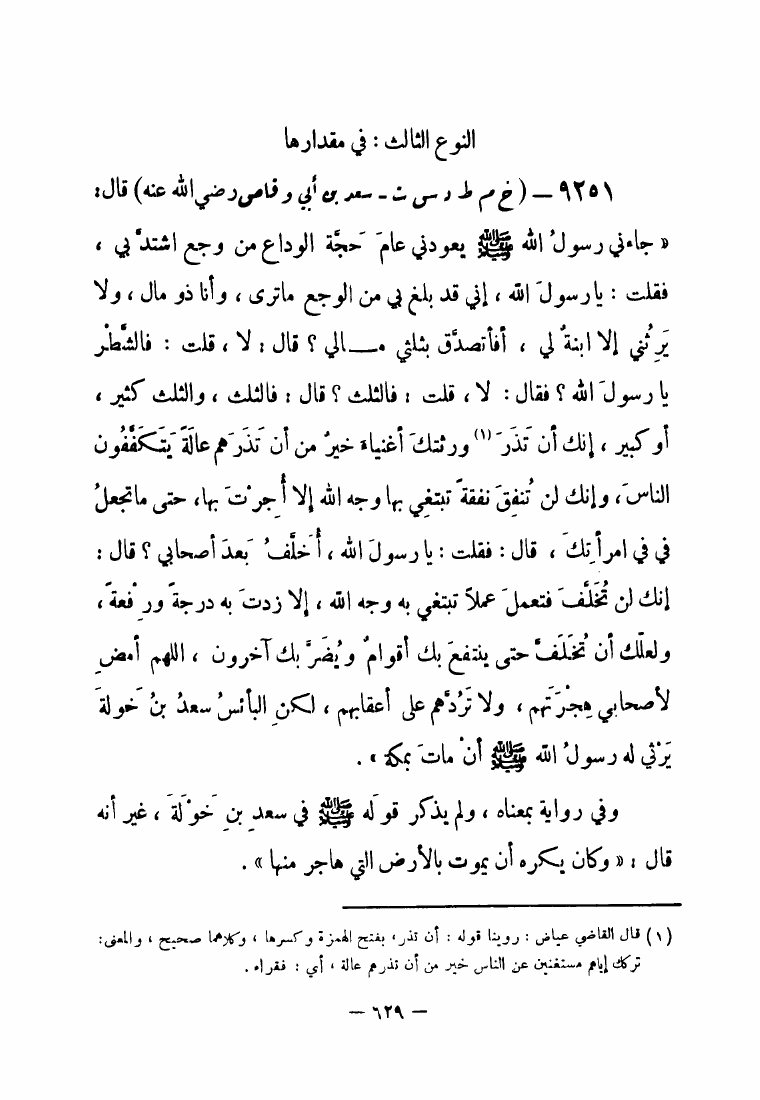 النوع الثالث : في مقدارها
٩٢٥١ — ( خ م ط د س ت - سعد بن أبي وقاص رضي الله عنه ) قال :
« جاءني رسولُ الله ﷺ يعودني عامَ حَجَّة الوداع من وجع اشتدَّ بي ،
فقلت : يا رسولَ الله ، إني قد بلغ بي من الوجع ماترى ، وأنا ذو مال ، ولا
يَرِثُني إلا ابنةٌ لي ، أفأتصدَّق بثلثي مـالي ؟ قال : لا ، قلت : فالشَّطْر
يا رسولَ الله ؟ فقال : لا ، قلت : فالثلث ؟ قال : فالثلث ، والثلث كثير ،
أو كبير ، إنك أن تَذَرَ (١) ورثتكَ أغنياءَ خيرٌ من أن تَذَرَهم عالَةً يَتَكَفَّفُون
الناسَ، وإنك لن تُنفِقَ نفقةً تبتغِي بها وجه الله إلا أُجِرْتَ بها، حتى ماتجعلُ
في في امرأتِكَ ، قال : فقلت : يا رسولَ الله ، أُخَلَّفُ بَعدَ أصحابي ؟ قال :
إنك لن تُخَلَّفَ فتعملَ عملاً تبتغي به وجه الله ، إلا زدتَ به درجةً ورِفْعةً ،
ولعلّك أن تُخَلَّفَ حتى ينتفعَ بك أقوامٌ ويُضَرَّ بك آخرون ، اللهم أمضِ
لأصحابي هِجْرَتَهم ، ولا تَرُدَّهم على أعقابهم ، لكنِ البائسُ سعدُ بنُ خَولةَ
يَرْثي له رسولُ الله ﷺ أنْ ماتَ بمكة » .
وفي رواية بمعناه ، ولم يذكر قولَه ﷺ في سعدِ بنِ خَوْلَةَ ، غير أنه
قال : « وكان يكره أن يموت بالأرض التي هاجر منها » .
(١) قال القاضي عياض : روينا قوله : أن تذر، بفتح الهمزة وكسرها ، وكلاهما صحيح ، والمعنى :
تركك إياهم مستغنين عن الناس خير من أن تذرهم عالة ، أي : فقراء .
— ٦٢٩ —